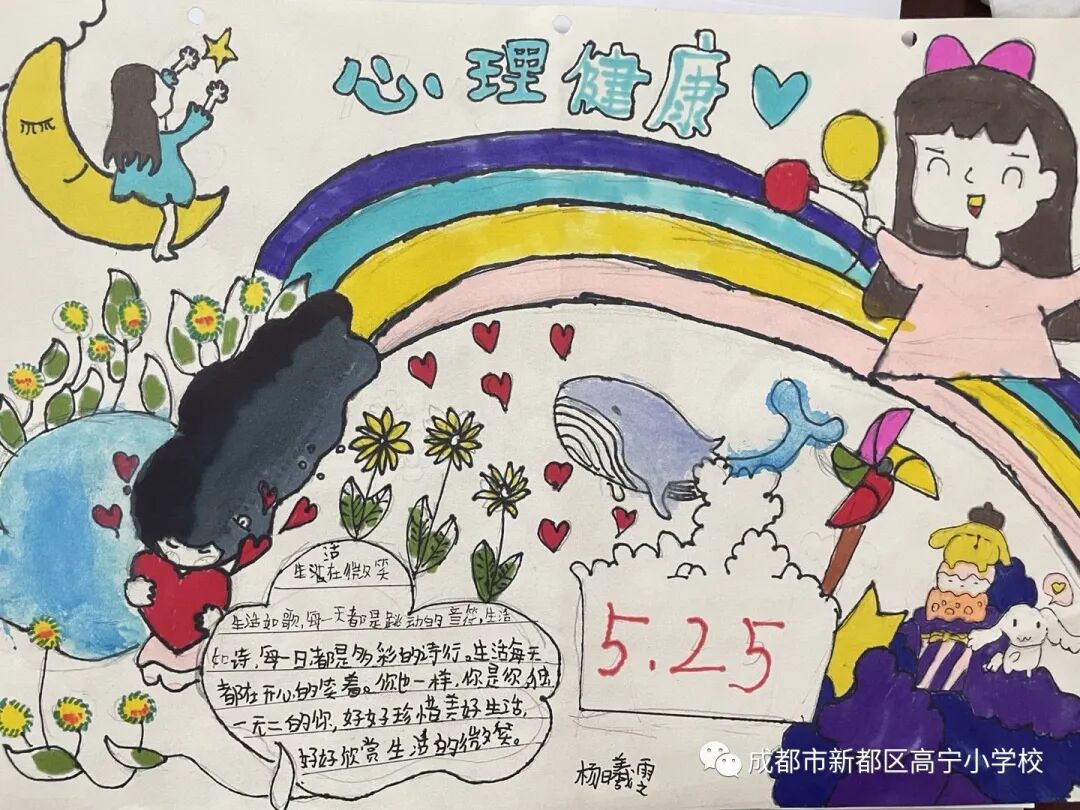 心理健康
生活在微笑
生活如歌，每一天都是跳动的音符，生活
如诗，每一日都是多彩的诗行。生活每天
都在开心的笑着。你也一样，你是你，独
一无二的你，好好珍惜美好生活，
好好欣赏生活的微笑。
5.25
成都市新都区高宁小学校